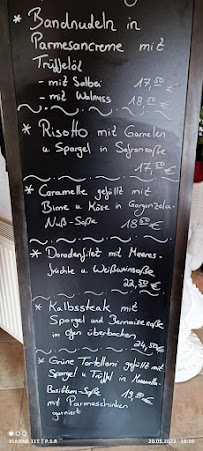 * Bandnudeln in
Parmesancreme mit
Trüffelöl
- mit Salbei 17,50
- mit Walnuss 18,50 €
* Risotto mit Garnelen
u. Spargel in Safransoße
17,50 €
* Caramelle gefüllt mit
Birne u Käse in Gorgonzola-
Nuß-Soße 18,50 €
* Doradenfilet mit Meeres-
früchte u Weißweinsoße
22,50 €
* Kalbssteak mit
Spargel und Bernaise soße
in Ofen überbacken
24,50 €
* Grüne Tortelloni gefüllt mit
Spargel u Trüffel in
Basilikum-Soße 19,50 €
mit Parmaschinken
garniert
XIAOMI 11T | P.S.R
20.05.2023